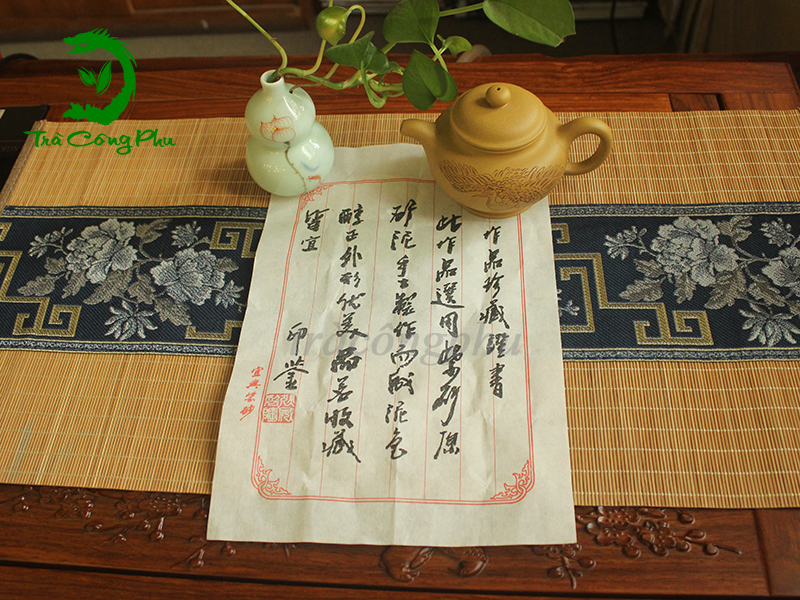 Trà Công Phu
作品珍藏證書
此作品選用紫砂原
矿泥手工製作而成泥色
醇正外形优美品茗收藏
皆宜
印鉴
宜興紫砂
tràcôngphu